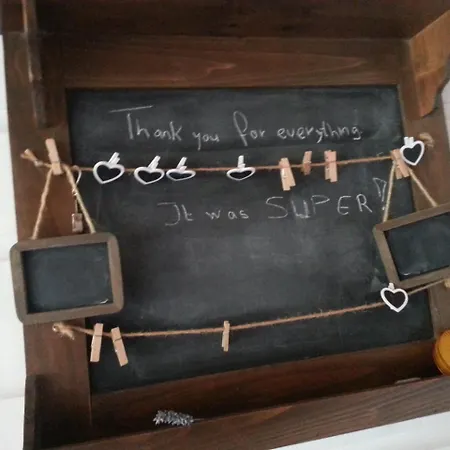 Thank you for everything
It was SUPER!